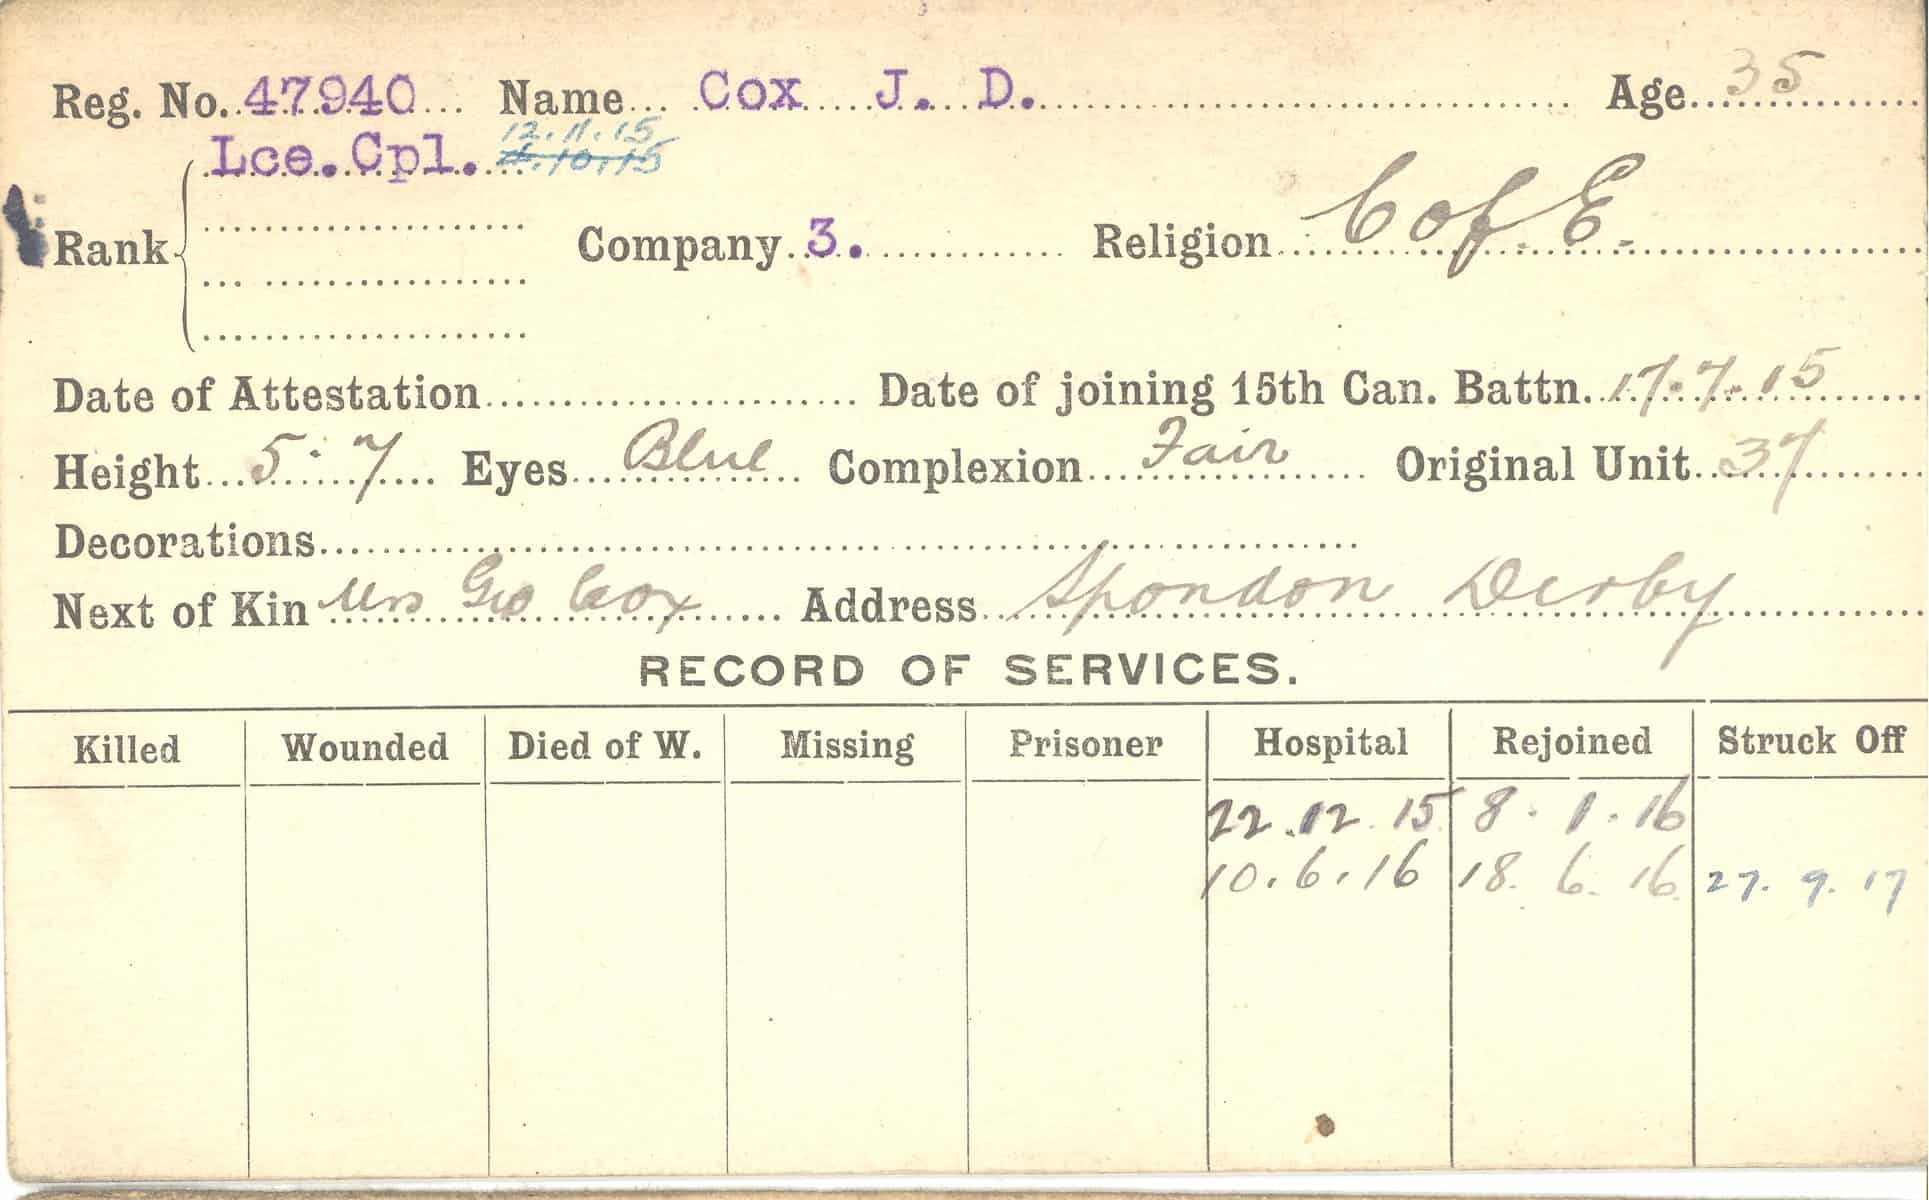 Reg. No. 47940 Name Cox J. D. Age 35
Lce. Cpl. 12.11.15
Rank Company 3. Religion C of E.
Date of Attestation Date of joining 15th Can. Battn. 17.7.15
Height 5.7 Eyes Blue Complexion Fair Original Unit 37
Decorations
Next of Kin Mrs Geo Cox Address Spondon Derby
RECORD OF SERVICES.
Killed Wounded Died of W. Missing Prisoner Hospital Rejoined Struck Off
22.12.15 8.1.16
10.6.16 18.6.16 27.9.17